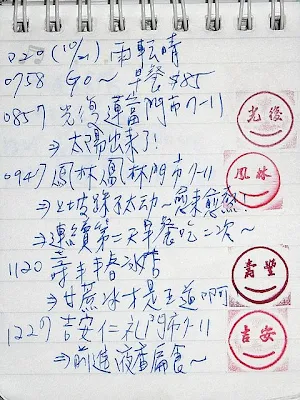 020 (10/21) 雨転晴
0758 GO～早餐$85
0857 光復蓮富門市7-11
光復
⇒太陽出來了!
0947 鳳林鳳林門市7-11
鳳林
⇒上坡踩不太动～愈来愈熱!
⇒連續第二天早餐吃二次～
1120 壽丰丰春冰店
壽豐
⇒甘蔗冰才是王道啊
1227 吉安仁礼門市7-11
吉安
⇒前進液香扁食～